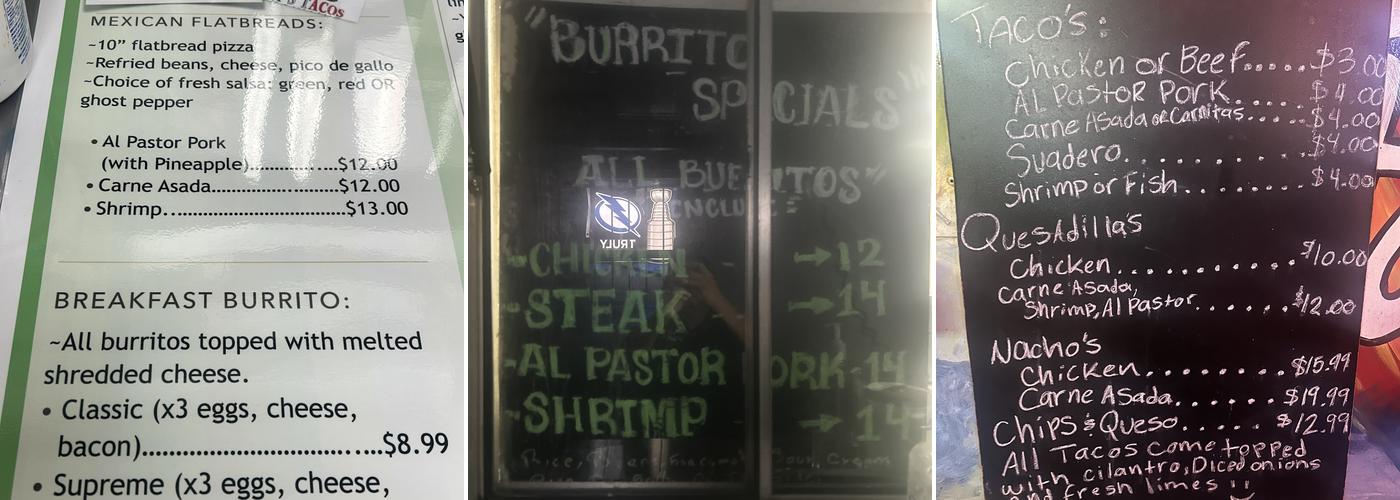 TACOS
MEXICAN FLATBREADS:
~10” flatbread pizza
~Refried beans, cheese, pico de gallo
~Choice of fresh salsa: green, red OR
ghost pepper
• Al Pastor Pork
(with Pineapple)..................$12.00
• Carne Asada........................$12.00
• Shrimp..................................$13.00
BREAKFAST BURRITO:
~All burritos topped with melted
shredded cheese.
• Classic (x3 eggs, cheese,
bacon)..................................$8.99
• Supreme (x3 eggs, cheese,
"BURRITO
SPECIALS"
ALL BURRITOS"
INCLUDE:
TRULY
-CHICKEN - →12
-STEAK →14
-AL PASTOR PORK-14
-SHRIMP → 14
Sour Cream
TACO's:
Chicken or Beef.....$3.00
AL PastoR PoRK.....$4.00
Carne Asada or Carnitas.....$4.00
Suadero..........$4.00
Shrimp or Fish........$4.00
QuesAdilla's
Chicken............$10.00
Carne Asada,
Shrimp, Al Pastor......$12.00
Nacho's
Chicken........$15.99
Carne Asada......$19.99
Chips & Queso.....$12.99
All Tacos come topped
with cilantro, Diced onions
and fresh limes !!